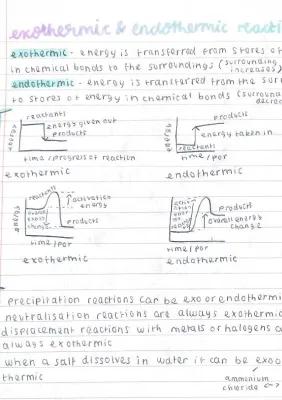 exothermic & endothermic reacti
exothermic - energy is transferred from stores of
in chemical bonds to the surroundings (surrounding
increases)
endothermic - energy is transferred from the surr
to stores of energy in chemical bonds (surrounds
decrea
reactants
energy given out
products
energy
time/progress of reaction
exothermic
products
energy taken in
reactants
energy
time/por
endothermic
reactants
activation
energy
overall
energy
change
products
energy
time/por
exothermic
products
overall energy
change
energy
time/por
endothermic
precipitation reactions can be exo or endothermi
neutralisation reactions are always exothermic
displacement reactions with metals or halogens a
always exothermic
when a salt dissolves in water it can be exo o
thermic
ammonium
chloride